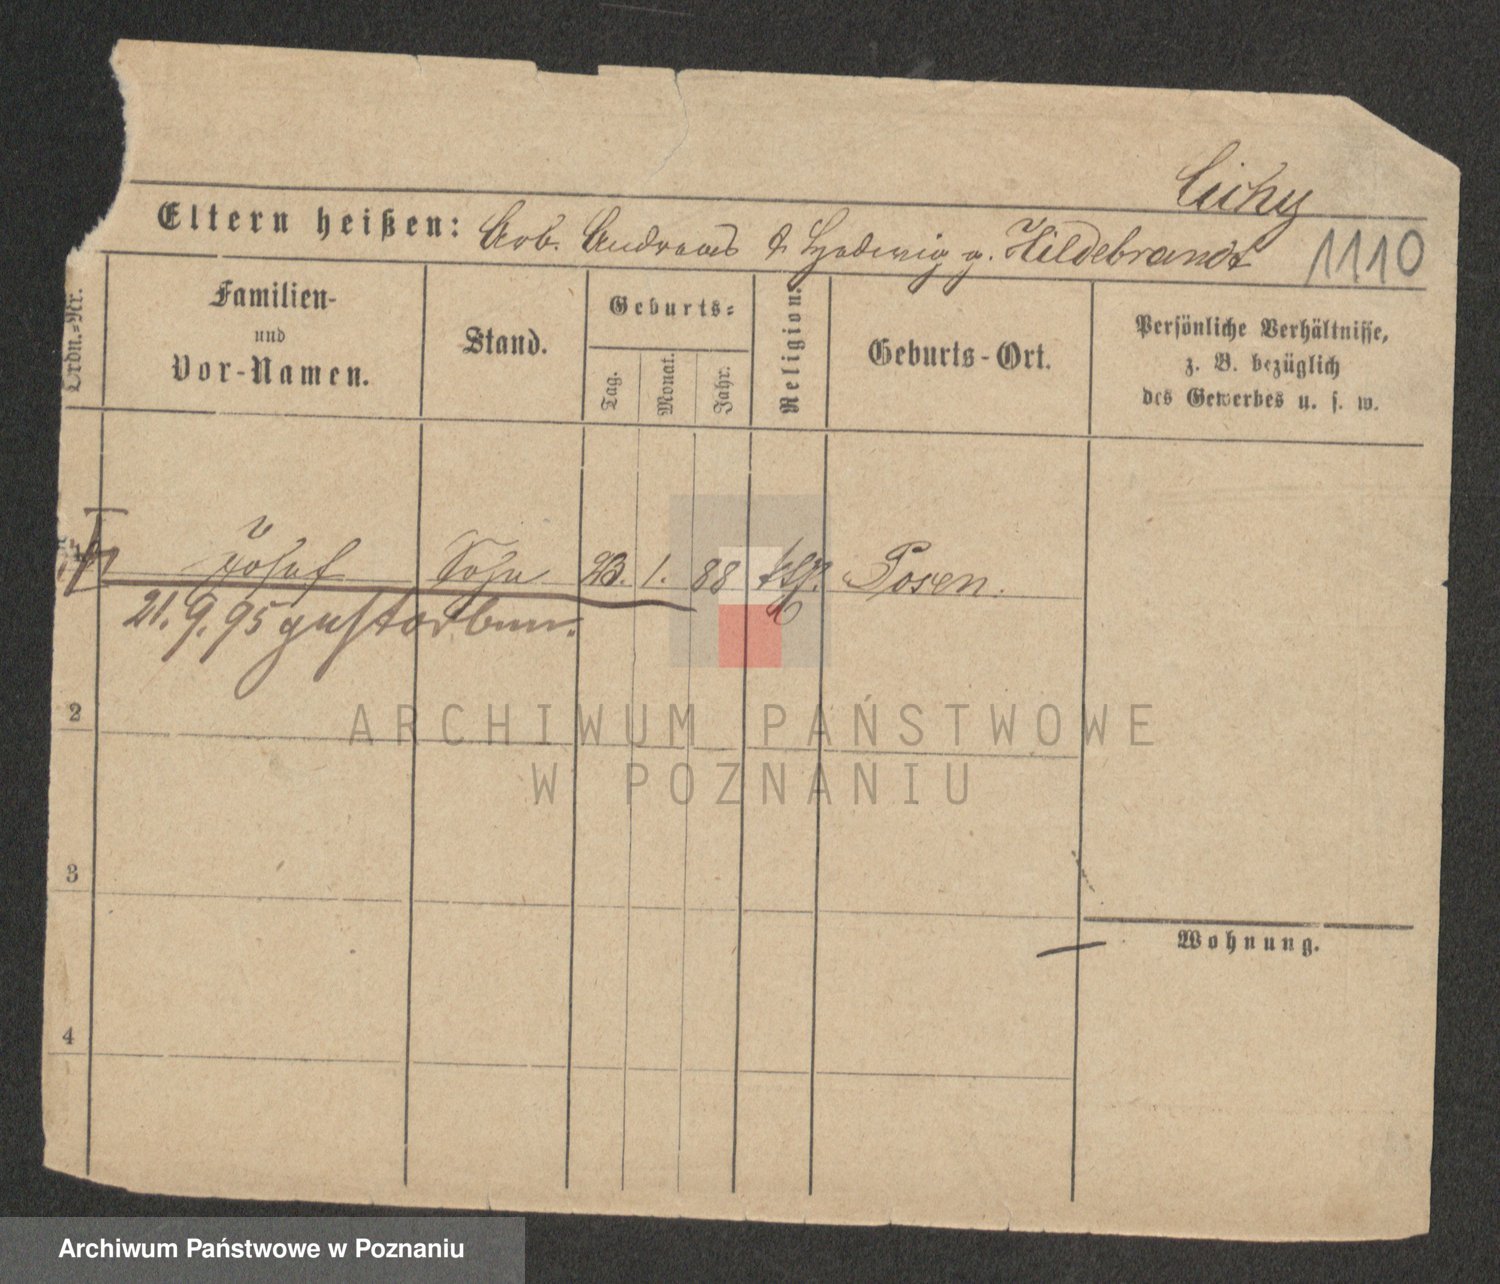 Cichy
Eltern heißen: Arb. Andreas & Hedwig g. Hildebrandt
1110
Ordn.-Nr.
Familien-
und
Vor-Namen.
Stand.
Geburts-
Tag.
Monat.
Jahr.
Religion.
Geburts-Ort.
Persönliche Verhältnisse,
z. B. bezüglich
des Gewerbes u. s. w.
Josef Sohn 23. 1. 88 kth. Posen.
21. 9. 95 gestorben.
2
3
4
Wohnung.
ARCHIWUM PAŃSTWOWE
W POZNANIU
Archiwum Państwowe w Poznaniu